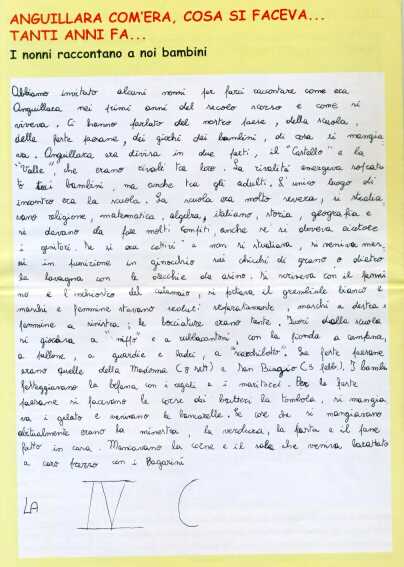 ANGUILLARA COM'ERA, COSA SI FACEVA...
TANTI ANNI FA...
I nonni raccontano a noi bambini
Abbiamo invitato alcuni nonni per farci raccontare come era
Anguillara nei primi anni del secolo scorso e come si
viveva. Ci hanno parlato del nostro paese, della scuola,
delle feste paesane, dei giochi dei bambini, di cosa si mangia
va. Anguillara era divisa in due parti, il "Castello" e la
"Valle", che erano rivali tra loro. La rivalità emergeva
tra i bambini, ma anche tra gli adulti. L'unico luogo di
incontro era la scuola. La scuola era molto severa, si studia
vano religione, matematica, algebra, italiano, storia, geografia e
si devano da fare molti compiti, anche se si doveva aiutare
i genitori. Se si era cattivi e non si studiava, si veniva mes
si in punizione in ginocchio sui chicchi di grano o dietro
la lavagna con le orecchie da asino. Si scriveva con il penni
no e l'inchiostro del calamaio, si portava il grembiule bianco e
maschi e femmine stavano seduti separatamente, maschi a destra e
femmine a sinistra; le bocciature erano tante. Fuori dalla scuola
si giocava a "niffo" e a rubbacantoni, con la fionda a campana,
a pallone, a guardie e ladri, a. Le feste paesane
erano quelle della Madonna (8 sett) e San Biagio (3 febb). I bambi
festeggiavano la befana con i regali e i maritozzi. Per le feste
paesane si facevano le corse dei butteri la tombola, si mangia
va il gelato e venivano le bancarelle. Le cose che si mangiavano
abitualmente erano la minestra, la verdura, la pasta e il pane
fatto in casa. Mancavano la carne e il sale che veniva barattato
a caro prezzo con i Bagarini
LA IV C